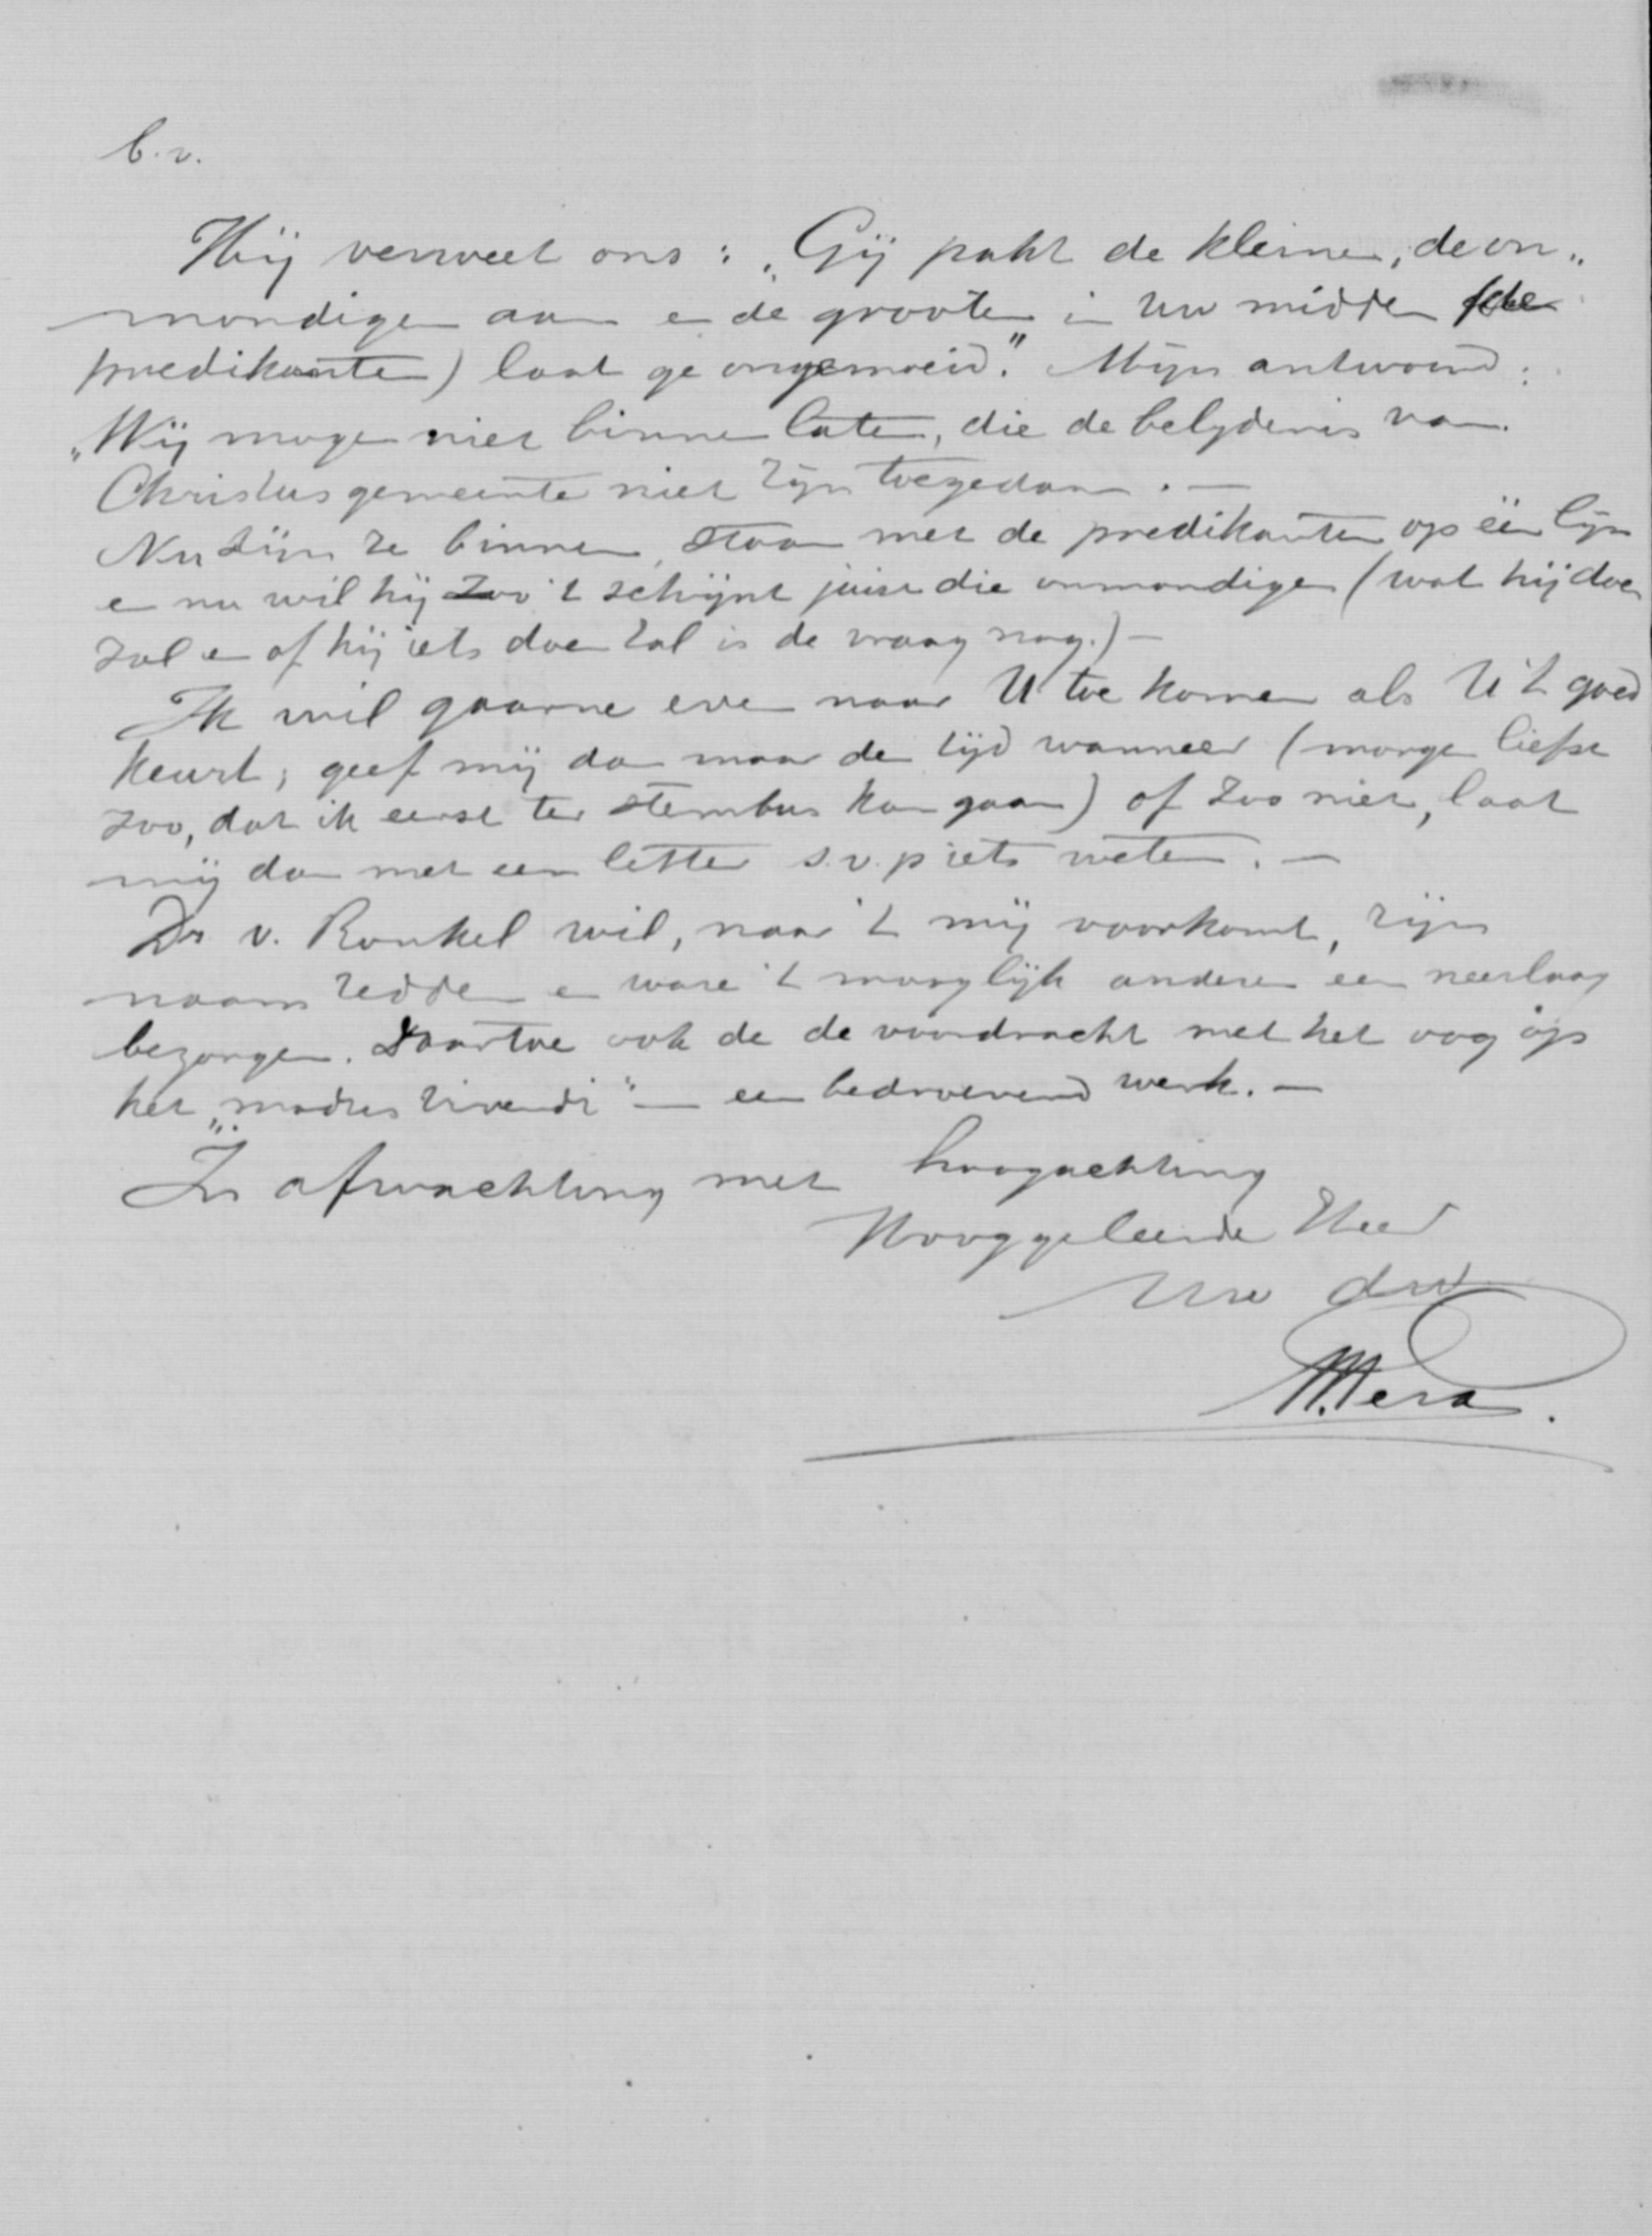 b.v.
Hij verweet ons: „Gij pakt de kleinen, de on„
mondigen aan en de grooten in Uw midden (de
predikanten) laat ge ongemoeid." Mijn antwoord:
„Wij mogen niet binnen laten, die de belydenis van
Christus gemeente niet zijn toegedaan. —
Nu zijn ze binnen, staan met de predikanten op één lijn
en nu wil hij zoo 't schijnt juist die onmondigen (wat hij doen
zal en of hij iets doen zal is de vraag nog.) —
Ik wil gaarne even naar U toe komen als U 't goed
keurt; geef mij dan maar den tijd wanneer (morgen liefst
zoo, dat ik eerst ter stembus kan gaan) of zoo niet, laat
mij dan met een letter s.v.p iets weten. —
Dr v. Ronkel wil, naar 't mij voorkomt, zijn
naam redden en ware 't mooglijk anderen een neerlaag
bezorgen. Daartoe ook de de voordracht met het oog op
het „modus vivendi" — een bedroevend werk. —
In afwachting met hoogachting
Hooggeleerde Heer
Uw dw